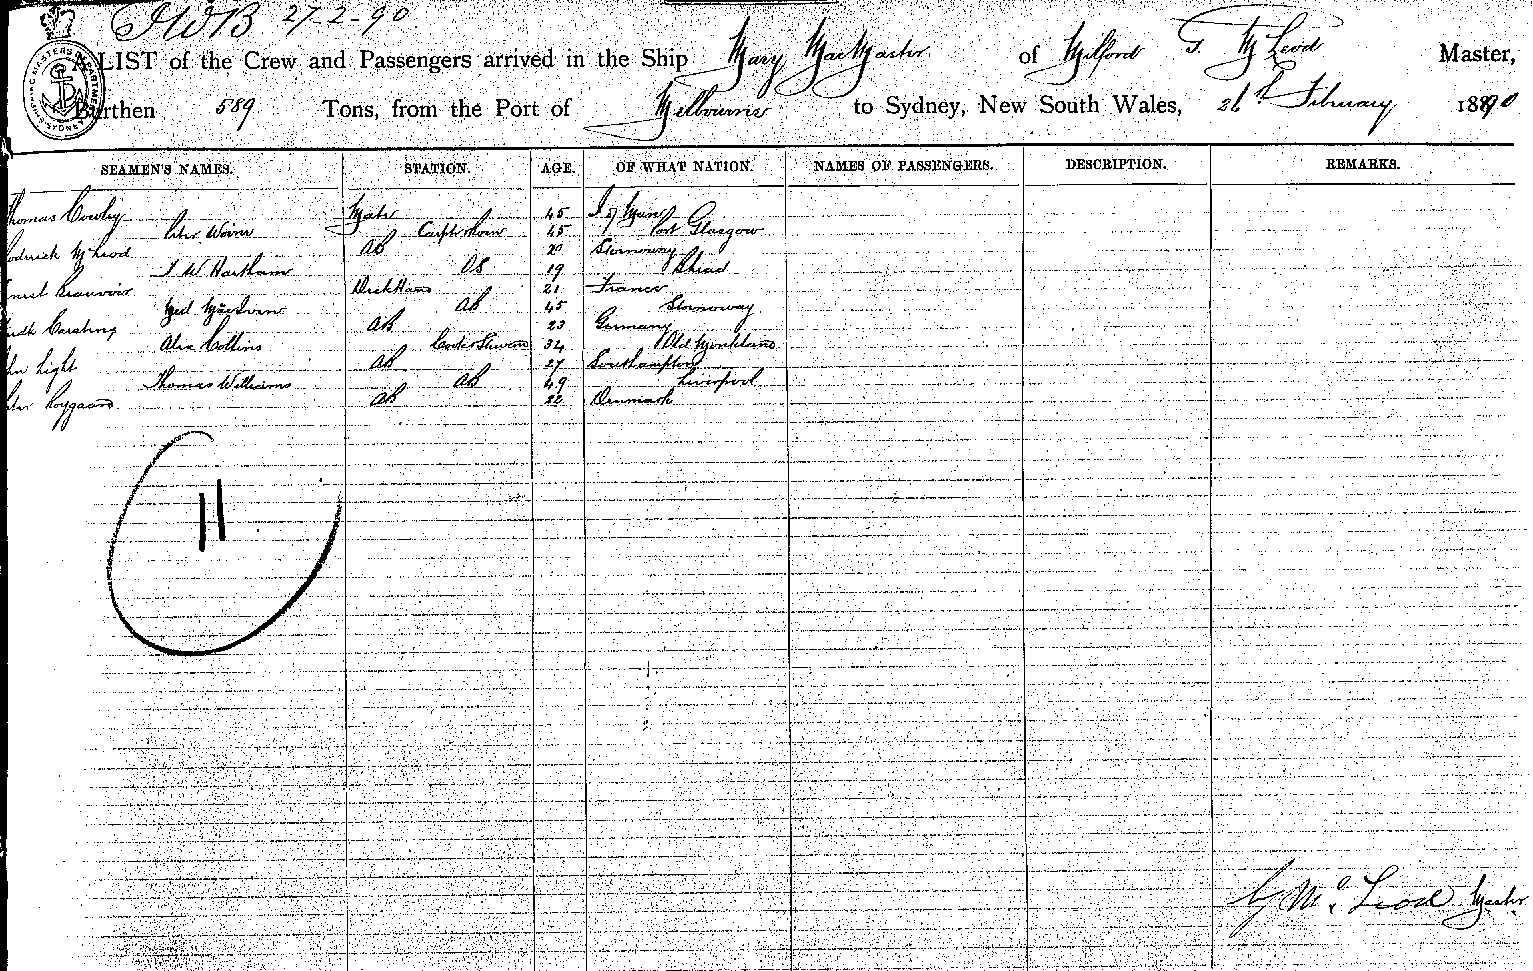 27-2-90
A LIST of the Crew and Passengers arrived in the Ship Mary MacMaster of Milford McLeod Master,
Burthen 589 Tons, from the Port of Melbourne to Sydney, New South Wales, 26th February 1890
SEAMEN'S NAMES. STATION. AGE. OF WHAT NATION. NAMES OF PASSENGERS. DESCRIPTION. REMARKS.
Thomas Cowley Mate 45 I of Man
Peter Carpenter 45 Port Glasgow
oderick McLeod AB 20 Stornoway
W Hartham OS 19 Bhead
rnest Beauvoir Deck Hand 21 France
AB 45 Stornoway
AB 23 Germany
Alex Collins Cook & Steward 34 Old Monkland
hn Light AB 27 Southampton
Thomas Williams AB 49 Liverpool
eter Roygaard AB 22 Denmark
11
McLeod Master